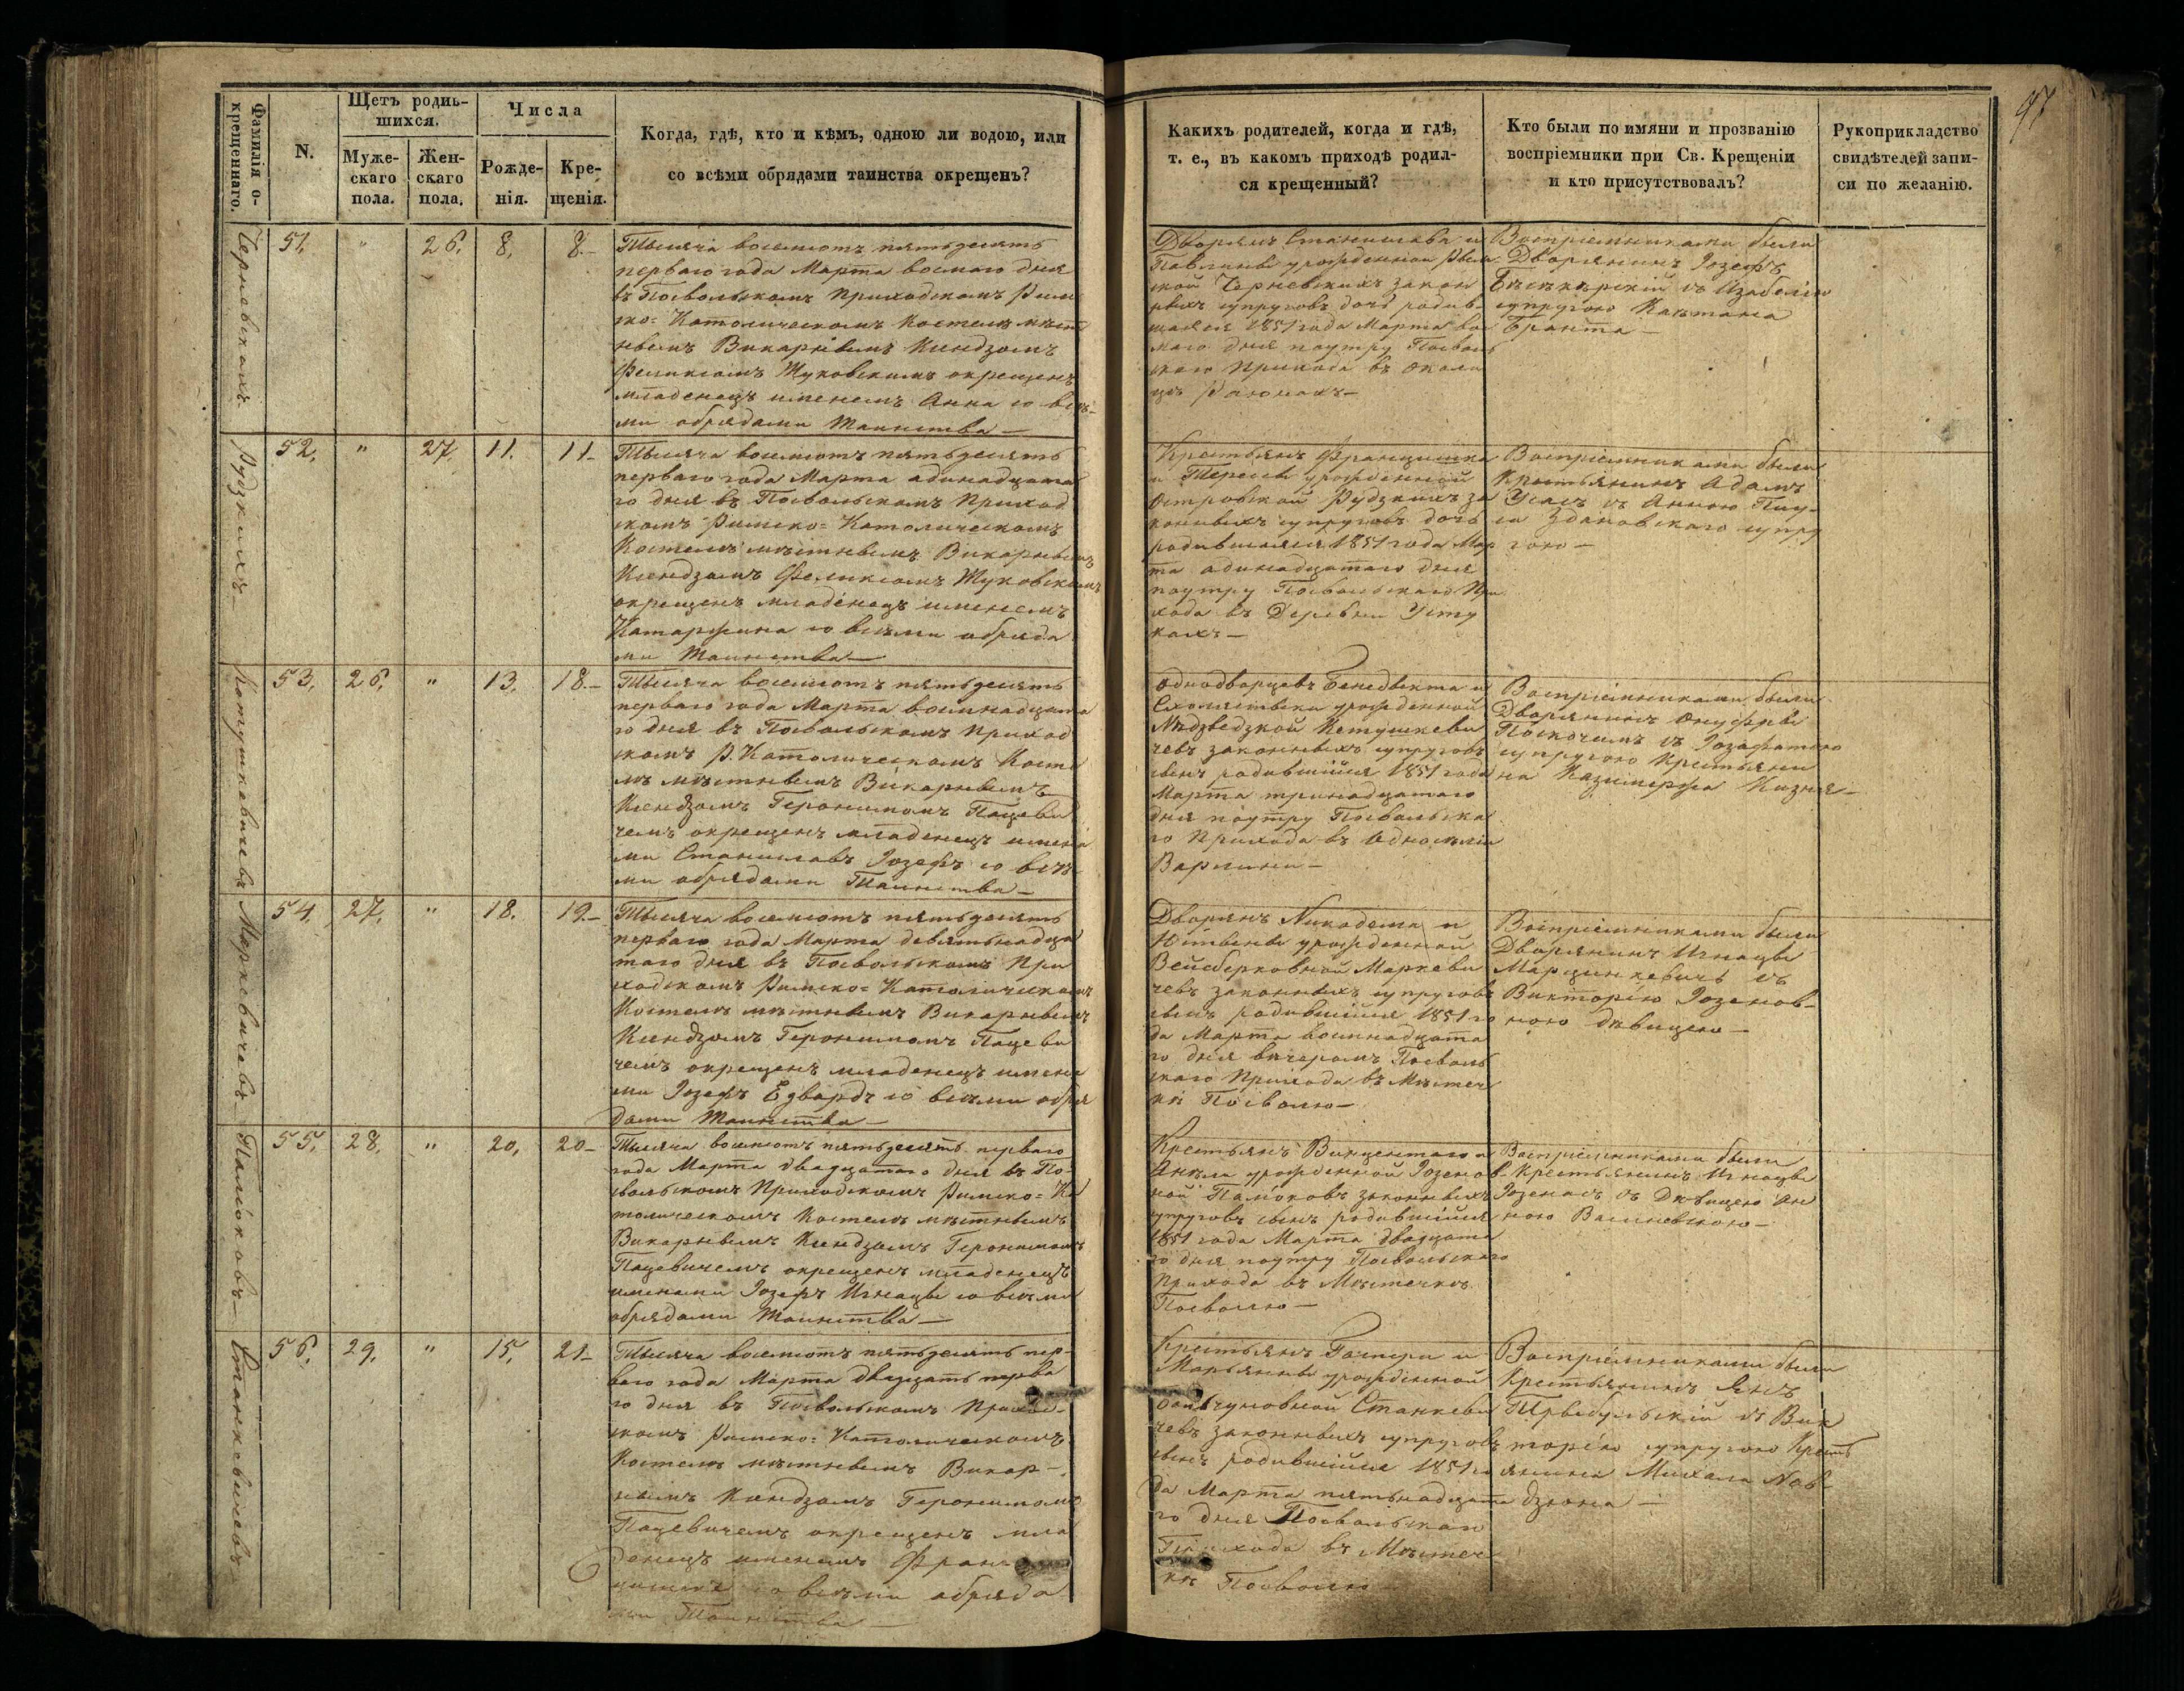 97
Фамилія о-
крещеннаго.
N.
Щетъ родив-
шихся.
Муже-
скаго
пола.
Жен-
скаго
пола.
Числа
Рожде-
нія.
Кре-
щенія.
Когда, гдѣ, кто и кѣмъ, одною ли водою, или
со всѣми обрядами таинства окрещенъ?
Какихъ родителей, когда и гдѣ,
т. е., въ какомъ приходѣ родил-
ся крещенный?
Кто были по имяни и прозванію
воспріемники при Св. Крещеніи
и кто присутствовалъ?
Рукоприкладство
свидѣтелей запи-
си по желанію.
Черневскихъ
51. " 26. 8. 8.
Тысяча восемсотъ пятьдесятъ
перваго года Марта восмаго дня
въ Посвольскомъ Приходскомъ Рим
ско=Католическомъ Костелѣ мѣст
нымъ Викарнымъ Ксендзомъ
Феликсомъ Жуковскимъ окрещенъ
младенецъ именемъ Анна со всѣ-
ми обрядами Таинства—
Дворянъ Станислава и
Павлины урожденной
ской Черневскихъ закон
ныхъ супруговъ дочь родив
шаяся 1851 года Марта вос
маго дня поутру Посволь
скаго Прихода въ Околи
цѣ
Воспріемниками были
Дворянинъ Іозефъ
съ Изабеллою
супругою Каетана
Бранта—
Рудзкихъ—
52. " 27. 11. 11.
Тысяча восемсотъ пятьдесятъ
перваго года Марта одинадцата
го дня въ Посвольскомъ Приход
скомъ Римско=Католическомъ
Костелѣ мѣстнымъ Викарнымъ
Ксендзомъ Феликсомъ Жуковскимъ
окрещенъ младенецъ именемъ
Катаржина со всѣми обряда
ми Таинства—
Крестьянъ Францишка
и Терессы урожденной
Островской Рудзкихъ за
конныхъ супруговъ дочь
родившаяся 1851 года Мар
та одинадцатаго дня
поутру Посвольскаго При
хода въ Деревни Усту
кахъ—
Воспріемниками были
Крестьянинъ Адамъ
съ Анною
Здановскаго супру
гою—
Котушкевичевъ
53. 26. " 13. 18.
Тысяча восемсотъ пятьдесятъ
перваго года Марта восмнадцата
го дня въ Посвольскомъ Приход
скомъ Р. Католическомъ Косте
лѣ мѣстнымъ Викарнымъ
Ксендзомъ Геронимомъ Пацеви
чемъ окрещенъ младенецъ имена
ми Станиславъ Іозефъ со всѣ
ми обрядами Таинства—
Однодворцевъ Бенедыкта и
Схолястыки урожденной
Нѣдзведзкой Котушкеви
чевъ законныхъ супруговъ
сынъ родившійся 1851 года
Марта тринадцатаго
дня поутру Посвольска
го Прихода въ
Воспріемниками были
Дворянинъ Онуфры
съ Іозафатою
супругою Крестьяни
на Казимержа
Маркевичевъ—
54. 27. " 18. 19.
Тысяча восемсотъ пятьдесятъ
перваго года Марта девятьнадца
таго дня въ Посвольскомъ При
ходскомъ Римско=Католическомъ
Костелѣ мѣстнымъ Викарнымъ
Ксендзомъ Геронимомъ Пацеви
чемъ окрещенъ младенецъ имена
ми Іозефъ Едвардъ со всѣми обря
дами Таинства—
Дворянъ Никодема и
Юстыны урожденной
Вейсберковной Маркеви
чевъ законныхъ супруговъ
сынъ родившійся 1851 го
да Марта восмнадцата
го дня вечеромъ Посволь
скаго Прихода въ Мѣстеч
кѣ Посволю—
Воспріемниками были
Дворянинъ Игнацы
Марцинкевичъ съ
Викторіею Іозенов-
ною дѣвицею—
55. 28. " 20. 20
Тысяча восемсотъ пятьдесятъ перваго
года Марта двадцатаго дня въ По-
свольскомъ Приходскомъ Римско=Ка
толическомъ Костелѣ мѣстнымъ
Викарнымъ Ксендзомъ Геронимомъ
Пацевичемъ окрещенъ младенецъ
именами Іозефъ Игнацы со всѣми
обрядами Таинства—
Крестьянъ Винцентаго и
Анели урожденной Іозенов
ной законныхъ
супруговъ сынъ родившійся
1851 года Марта двадцата
го дня поутру Посвольскаго
Прихода въ Мѣстечкѣ
Посволю—
Воспріемниками были
Крестьянинъ Игнацы
Іозенасъ съ Дѣвицею Ан
ною
Станкевичевъ
56. 29. " 15. 21
Тысяча восемсотъ пятьдесятъ пер-
ваго года Марта двадцать перва
го дня въ Посвольскомъ Приход-
скомъ Римско=Католическомъ
Костелѣ мѣстнымъ Викар-
нымъ Ксендзомъ Геронимомъ
Пацевичемъ окрещенъ мла
денецъ именемъ Фран
цишекъ со всѣми обряда
ми Таинства—
Крестьянъ и
Марьянны урожденной
Станкеви
чевъ законныхъ супруговъ
сынъ родившійся 1851 го
да Марта пятьнадцата
го дня Посвольскаго
Прихода въ Мѣстеч
кѣ Посволю
Воспріемниками были
Крестьянинъ Янъ
съ Вик
торіею супругою Кресть
янина Михала